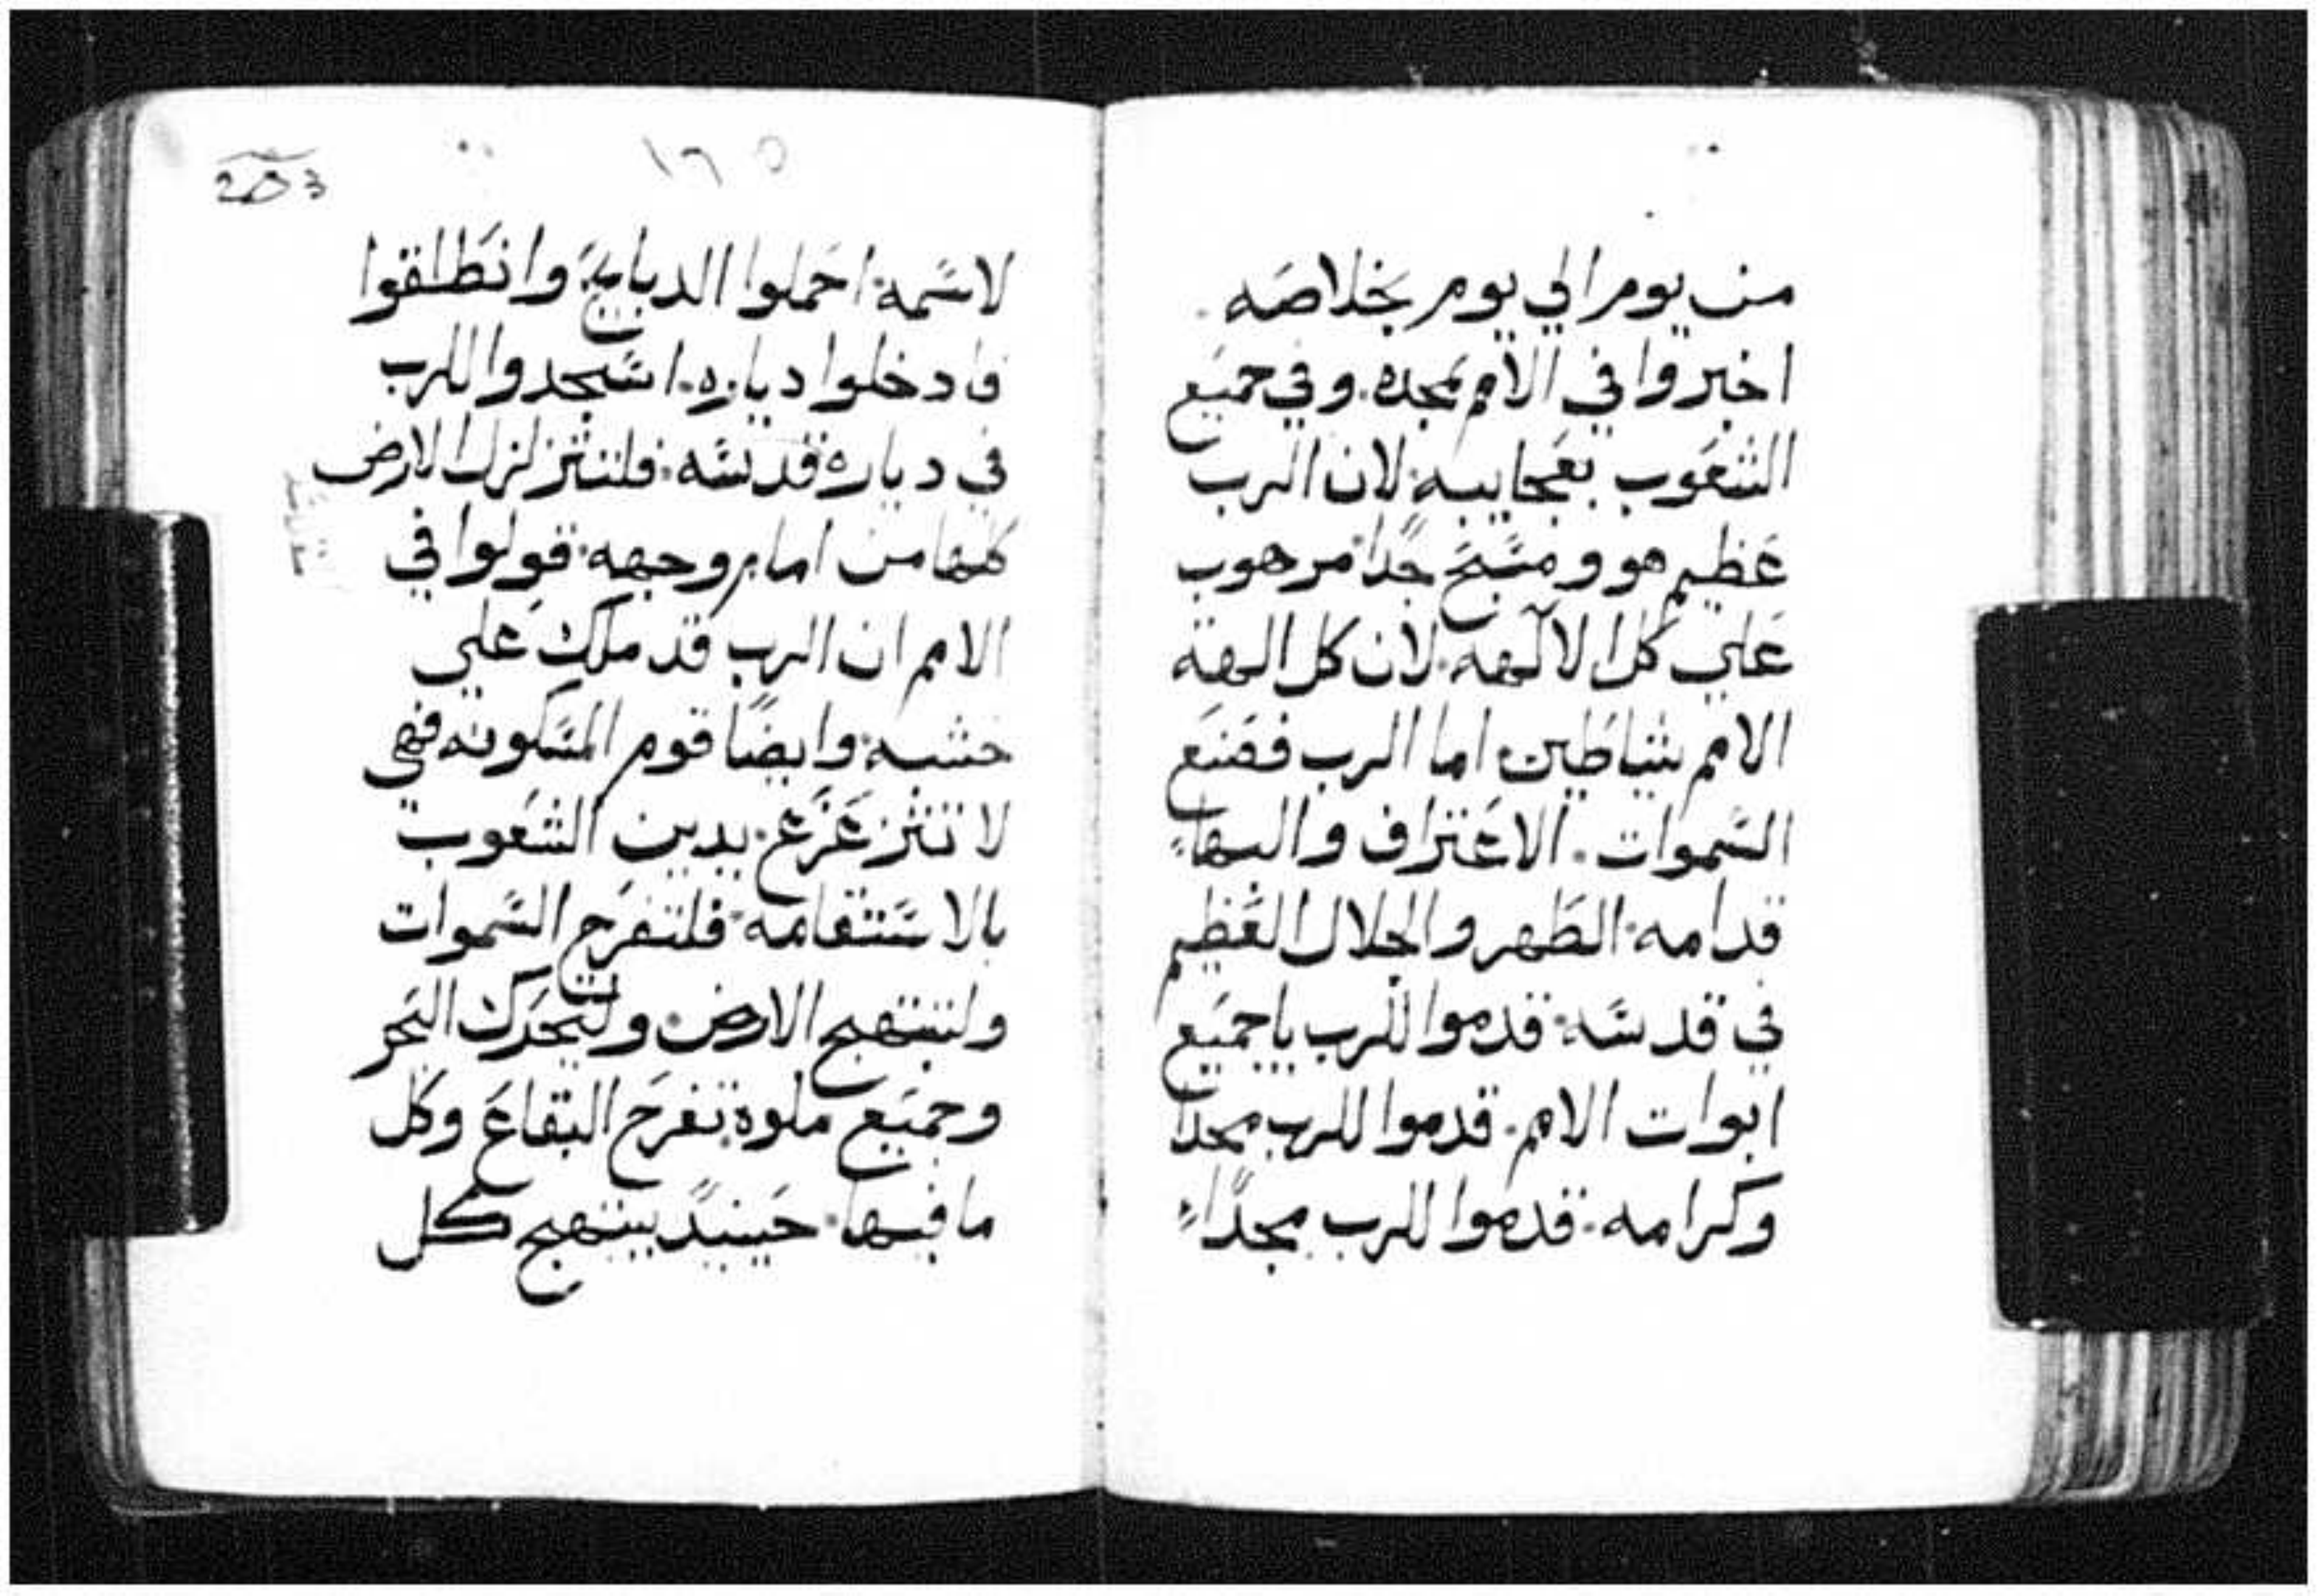 من يوم الي يوم بخلاصه.
اخبروا في الامم بمجده. وفي جميع
الشعوب بعجايبه. لان الرب
عظيم هو ومسبح جدا مرهوب
علي كل الالهه. لان كل الهة
الامم شياطين اما الرب فصنع
السموات. الاعتراف والبهاء
قدامه. الطهر والجلال العظيم
في قدسه. قدموا للرب ياجميع
ابوات الامم. قدموا للرب مجدا
وكرامه. قدموا للرب مجداء
١٦٥
لاسمه. احملوا الدبايح وانطلقوا
فادخلوا دياره. اسجدوا للرب
في دياره قدسه. فلتتزلزل الارض
كلها من امام وجهه. قولوا في
الامم ان الرب قد ملك علي
خشبه. وايضا قوم المسكونه فهي
لا تتزعزع. يدين الشعوب
بالاستقامه. فلتفرح السموات
ولتبتهج الارض. وليتحرك البحر
وجميع ملوه. تفرح البقاع وكل
ما فيها. حينيد يبتهج كل